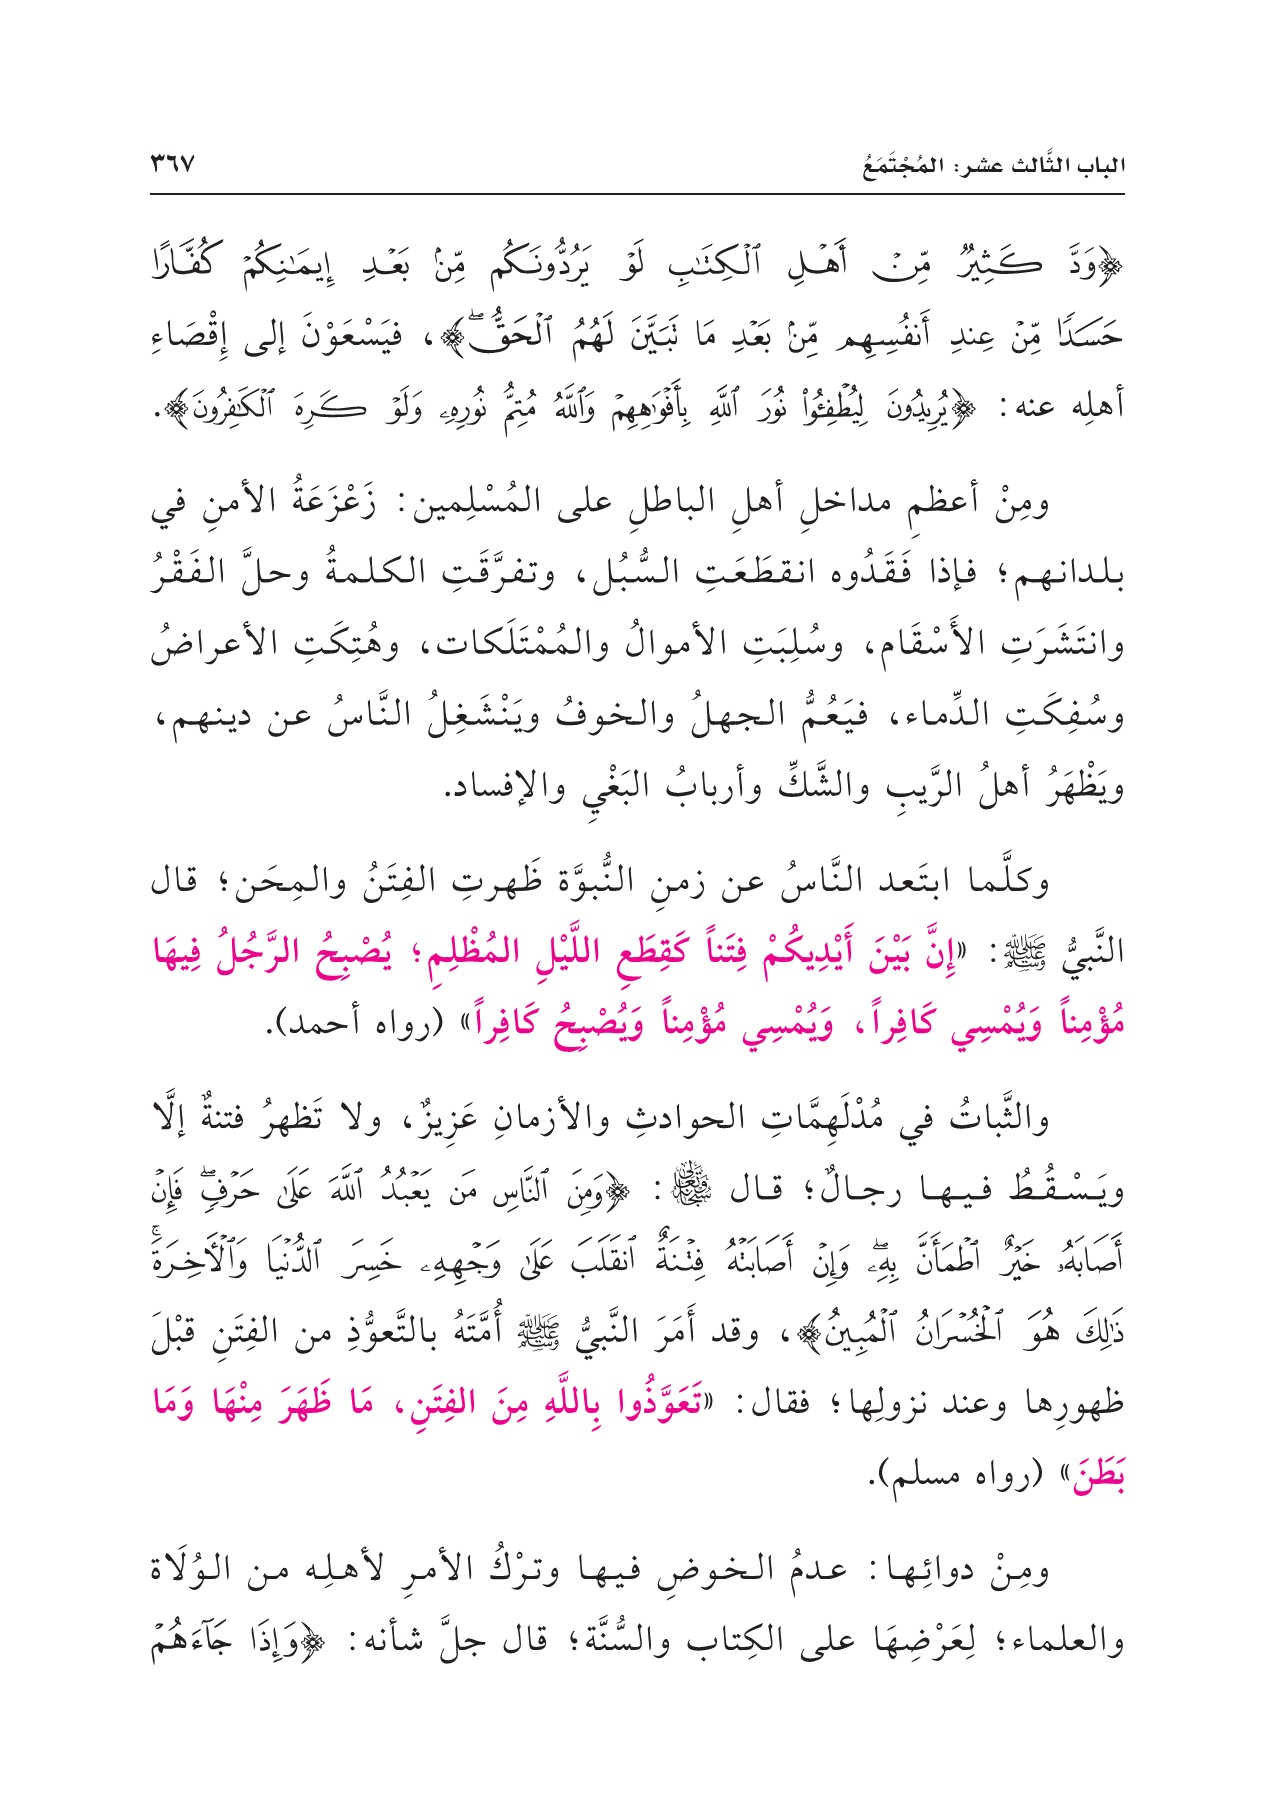 الباب الثَّالث عشر: المُجْتَمَعُ ٣٦٧
﴿وَدَّ كَثِيرٌ مِّنْ أَهْلِ ٱلْكِتَٰبِ لَوْ يَرُدُّونَكُم مِّنۢ بَعْدِ إِيمَٰنِكُمْ كُفَّارًا
حَسَدًا مِّنْ عِندِ أَنفُسِهِم مِّنۢ بَعْدِ مَا تَبَيَّنَ لَهُمُ ٱلْحَقُّۖ﴾، فيَسْعَوْنَ إلى إِقْصَاءِ
أهلِه عنه: ﴿يُرِيدُونَ لِيُطْفِـُٔوا۟ نُورَ ٱللَّهِ بِأَفْوَٰهِهِمْ وَٱللَّهُ مُتِمُّ نُورِهِۦ وَلَوْ كَرِهَ ٱلْكَٰفِرُونَ﴾.
ومِنْ أعظمِ مداخلِ أهلِ الباطلِ على المُسْلِمين: زَعْزَعَةُ الأمنِ في
بلدانهم؛ فإذا فَقَدُوه انقطَعَتِ السُّبُل، وتفرَّقَتِ الكلمةُ وحلَّ الفَقْرُ
وانتَشَرَتِ الأَسْقَام، وسُلِبَتِ الأموالُ والمُمْتَلَكات، وهُتِكَتِ الأعراضُ
وسُفِكَتِ الدِّماء، فيَعُمُّ الجهلُ والخوفُ ويَنْشَغِلُ النَّاسُ عن دينهم،
ويَظْهَرُ أهلُ الرَّيبِ والشَّكِّ وأربابُ البَغْيِ والإفساد.
وكلَّما ابتَعد النَّاسُ عن زمنِ النُّبوَّة ظَهرتِ الفِتَنُ والمِحَن؛ قال
النَّبيُّ ﷺ: «إِنَّ بَيْنَ أَيْدِيكُمْ فِتَناً كَقِطَعِ اللَّيْلِ المُظْلِمِ؛ يُصْبِحُ الرَّجُلُ فِيهَا
مُؤْمِناً وَيُمْسِي كَافِراً، وَيُمْسِي مُؤْمِناً وَيُصْبِحُ كَافِراً» (رواه أحمد).
والثَّباتُ في مُدْلَهِمَّاتِ الحوادثِ والأزمانِ عَزِيزٌ، ولا تَظهرُ فتنةٌ إلَّا
ويَسْقُطُ فيها رجالٌ؛ قال سُبْحَانَهُ وَتَعَالَى: ﴿وَمِنَ ٱلنَّاسِ مَن يَعْبُدُ ٱللَّهَ عَلَىٰ حَرْفٍۖ فَإِنْ
أَصَابَهُۥ خَيْرٌ ٱطْمَأَنَّ بِهِۦۖ وَإِنْ أَصَابَتْهُ فِتْنَةٌ ٱنقَلَبَ عَلَىٰ وَجْهِهِۦ خَسِرَ ٱلدُّنْيَا وَٱلْءَاخِرَةَۚ
ذَٰلِكَ هُوَ ٱلْخُسْرَانُ ٱلْمُبِينُ﴾، وقد أمَرَ النَّبيُّ ﷺ أُمَّتَهُ بالتَّعوُّذِ من الفِتَنِ قبْلَ
ظهورِها وعند نزولِها؛ فقال: «تَعَوَّذُوا بِاللَّهِ مِنَ الفِتَنِ، مَا ظَهَرَ مِنْهَا وَمَا
بَطَنَ» (رواه مسلم).
ومِنْ دوائِها: عدمُ الخوضِ فيها وترْكُ الأمرِ لأهلِه من الوُلَاة
والعلماء؛ لِعَرْضِهَا على الكِتاب والسُّنَّة؛ قال جلَّ شأنه: ﴿وَإِذَا جَآءَهُمْ